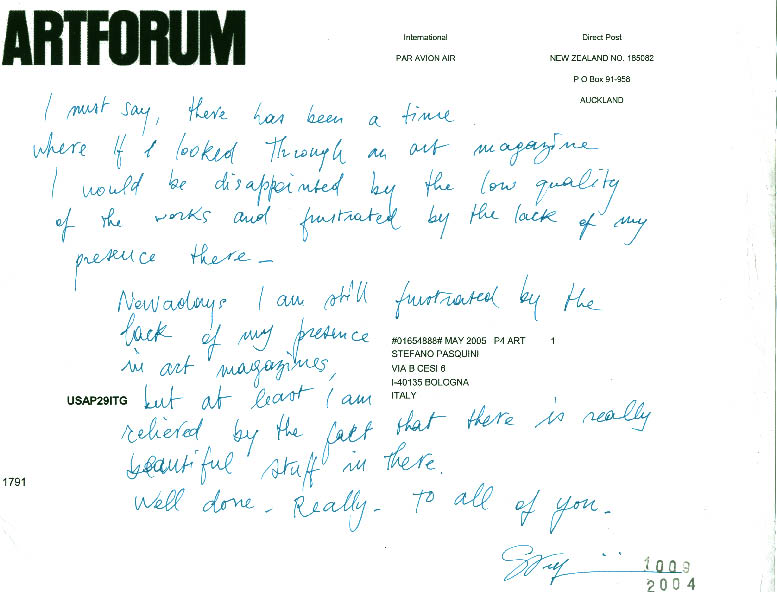 ARTFORUM
International
PAR AVION AIR
Direct Post
NEW ZEALAND NO. 185082
P O Box 91-958
AUCKLAND
I must say, there has been a time
where if I looked through an art magazine
I would be disappointed by the low quality
of the works and frustrated by the lack of my
presence there -
Nowadays I am still frustrated by the
lack of my presence
in art magazines,
#01654888# MAY 2005 P4 ART 1
STEFANO PASQUINI
VIA B CESI 6
I-40135 BOLOGNA
ITALY
USAP29ITG
but at least I am
relieved by the fact that there is really
beautiful stuff in there.
Well done - Really - To all of you -
1791
1009
2004